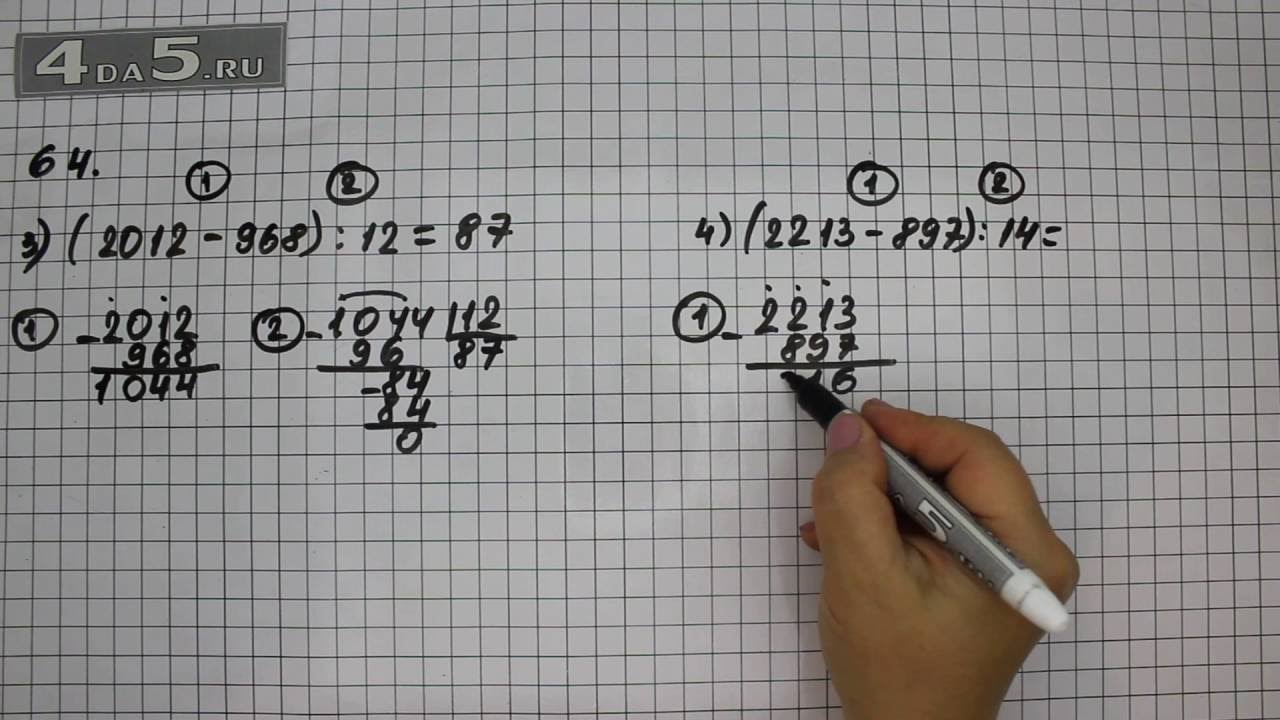 4DA5.RU
64.
1 2
3) (2012 - 968) : 12 = 87
1 - 2012
968
1044
2 - 1044 12
96 87
- 84
84
0
1 2
4) (2213 - 897) : 14 =
1 - 2213
897
16
5